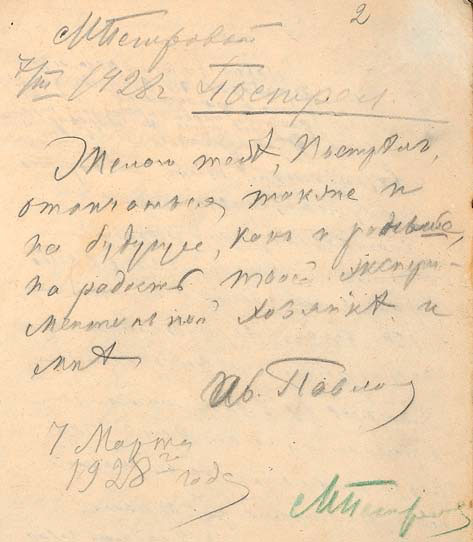 2
МПетровой
7/III 1928 г Пострел.
Желаю тебѣ, Пострѣлъ,
отличаться также и
на будущее, какъ и раньше,
на радость твоей экспери-
ментальной хозяйкѣ и
мнѣ
Ив. Павлов
7 Марта
1928 го года
МПетрова